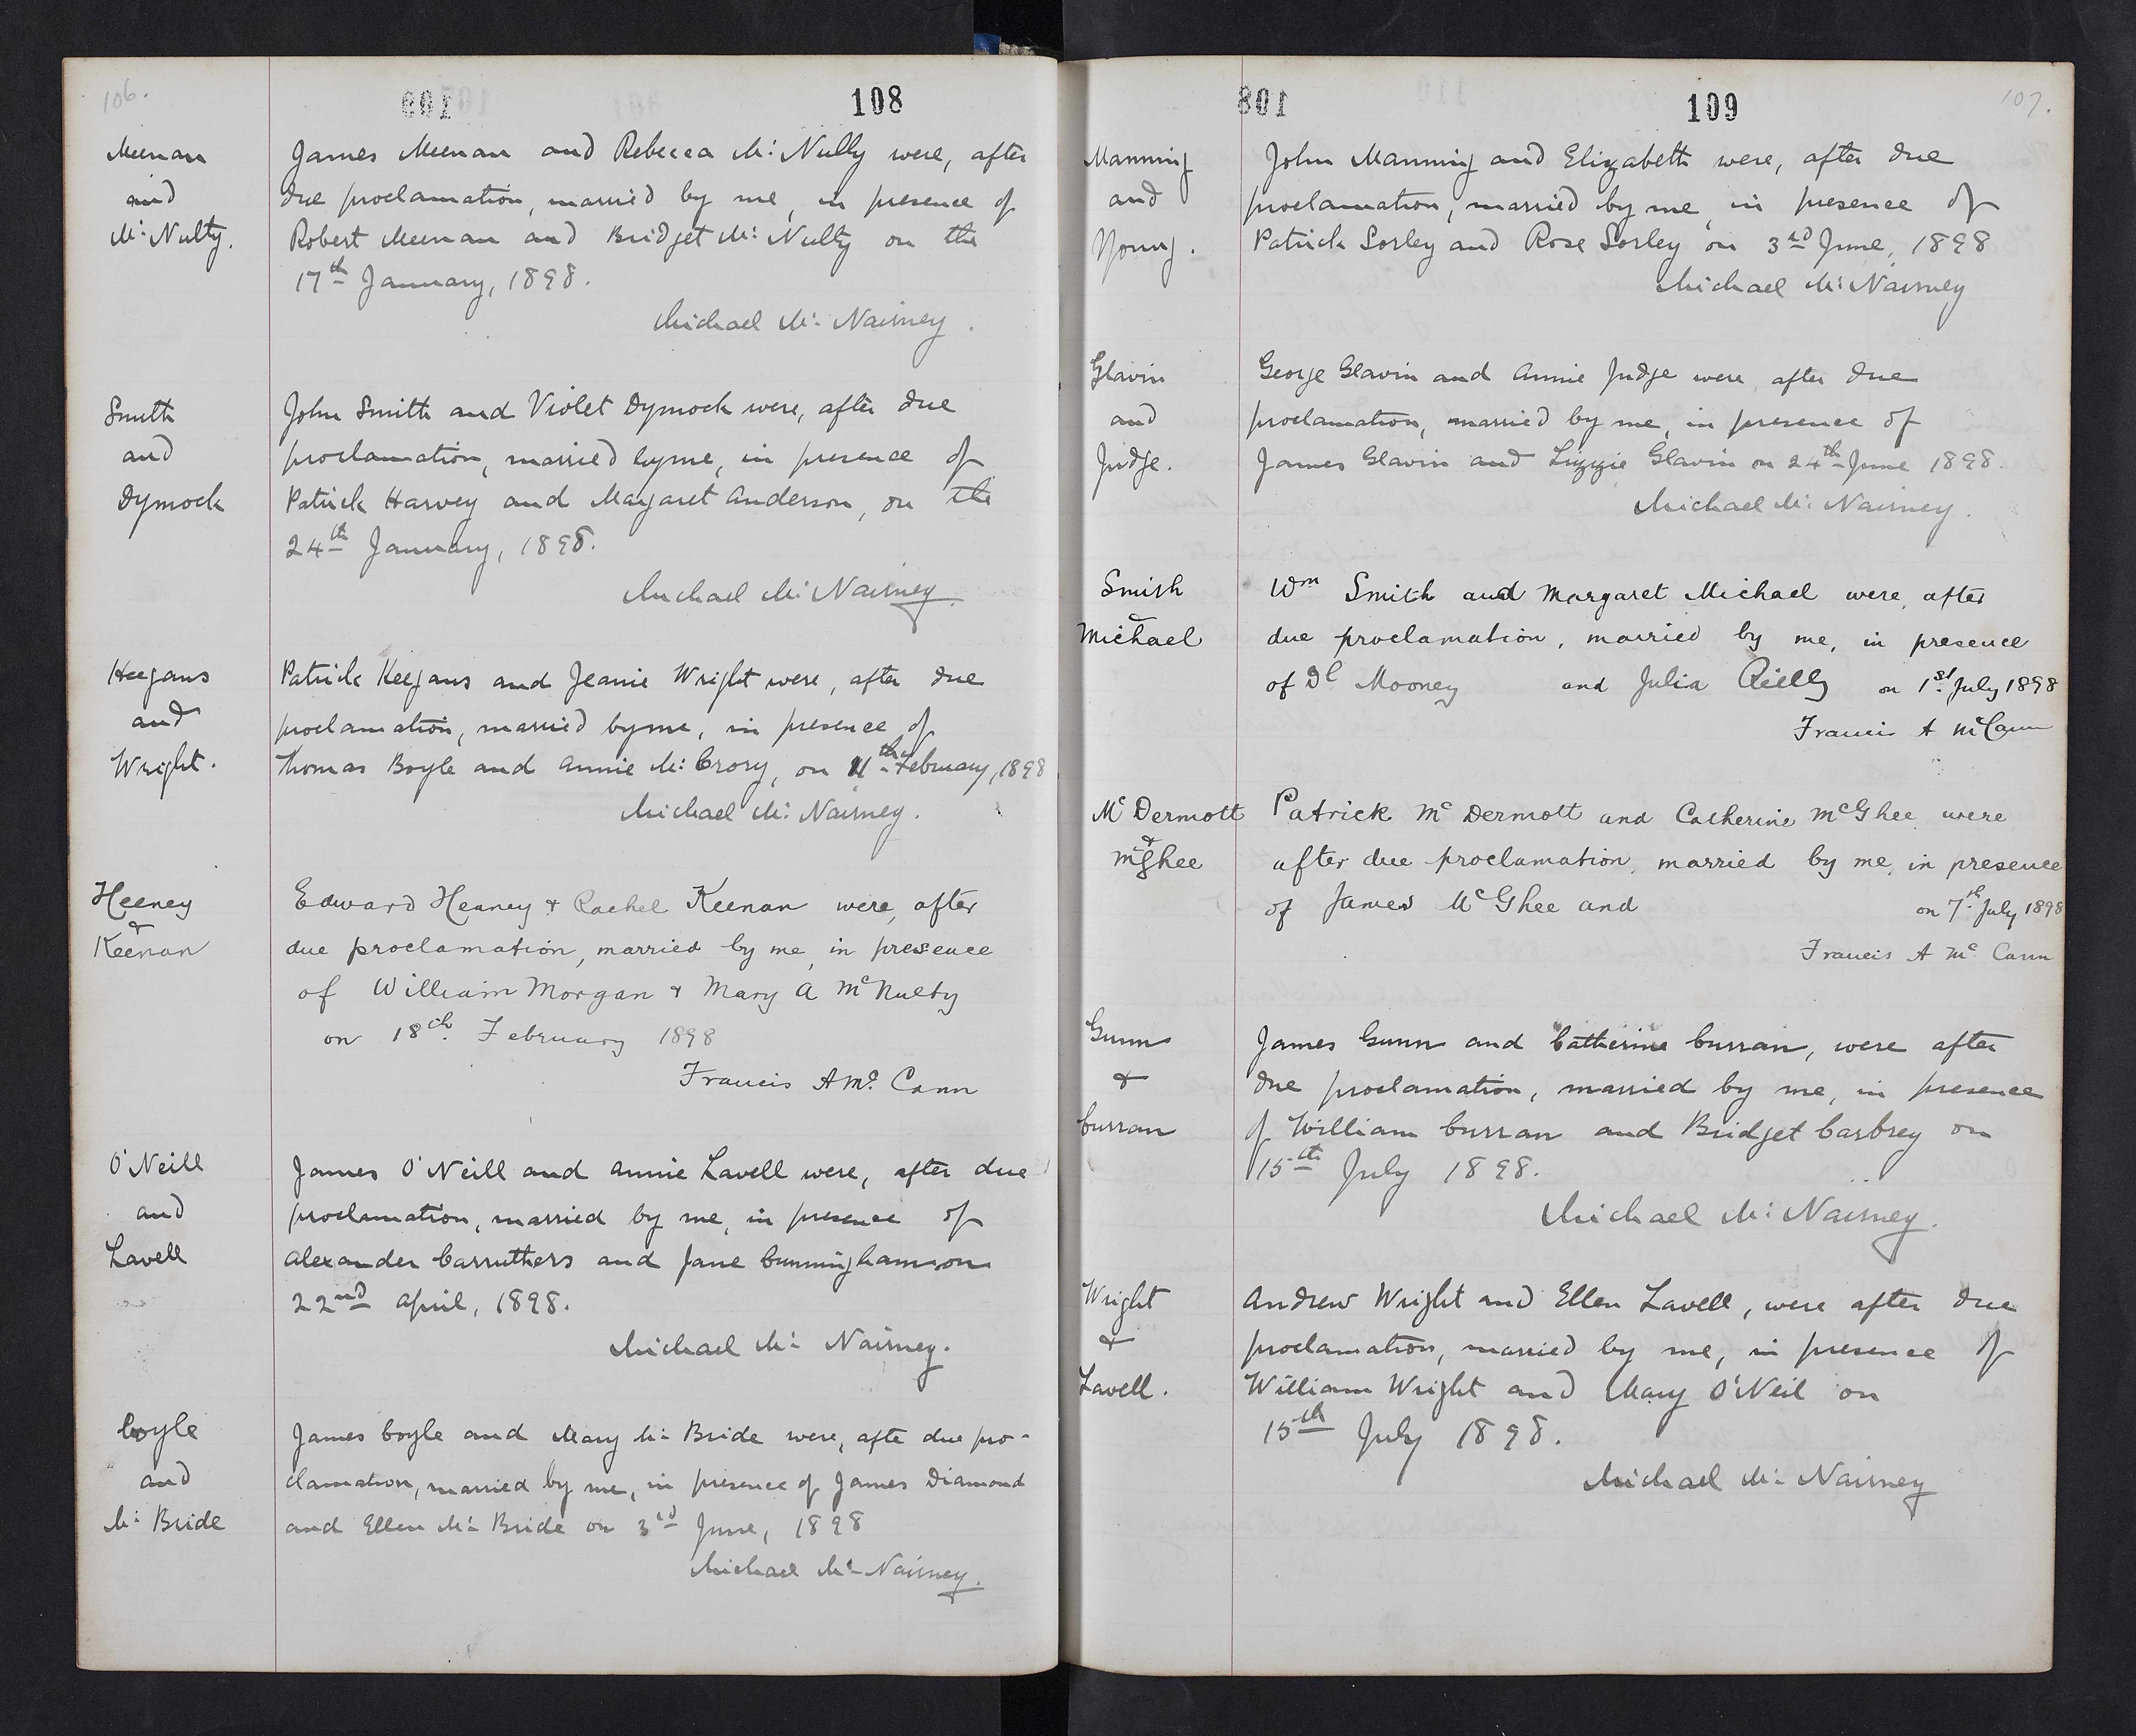 106.
108
Meenan
and
Mc Nulty.
James Meenan and Rebecca Mc Nulty were, after
due proclamation, married by me, in presence of
Robert Meenan and Bridget Mc Nulty on the
17th January, 1898.
Michael Mc Nairney.
Smith
and
Dymock
John Smith and Violet Dymock were, after due
proclamation, married by me, in presence of
Patrick Harvey and Margaret Anderson, on the
24th January, 1898.
Michael Mc Nairney.
Keegans
and
Wright.
Patrick Keegans and Jeanie Wright were, after due
proclamation, married by me, in presence of
Thomas Boyle and Annie Mc Crory, on 11th February, 1898
Michael Mc Nairney.
Heeney
&
Keenan
Edward Heaney & Rachel Keenan were, after
due proclamation, married by me, in presence
of William Morgan & Mary A McNulty
on 18th February 1898
Francis A Mc Cann
O'Neill
and
Lavell
James O'Neill and Annie Lavell were, after due
proclamation, married by me, in presence of
Alexander Carruthers and Jane Cunningham on
22nd April, 1898.
Michael Mc Nairney.
Coyle
and
Mc Bride
James Coyle and Mary Mc Bride were, afte due pro-
clamation, married by me, in presence of James Diamond
and Ellen Mc Bride on 3rd June, 1898
Michael Mc Nairney.
109
107.
Manning
and
Young.
John Manning and Elizabeth were, after due
proclamation, married by me, in presence of
Patrick Sorley and Rose Sorley on 3rd June, 1898
Michael Mc Nairney
Glavin
and
Judge.
George Glavin and Annie Judge were, after due
proclamation, married by me, in presence of
James Glavin and Lizzie Glavin on 24th June 1898.
Michael Mc Nairney.
Smith
&
Michael
Wm Smith and Margaret Michael were, after
due proclamation, married by me, in presence
of Dl Mooney and Julia Reilly on 1st July 1898
Francis A McCann
Mc Dermott
&
McGhee
Patrick Mc Dermott and Catherine McGhee, were
after due proclamation, married by me, in presence
of James McGhee and on 7th July 1898
Francis A Mc Cann
Gunn
&
Curran
James Gunn and Catherine Curran, were after
due proclamation, married by me, in presence
of William Curran and Bridget Carbrey on
15th July 1898.
Michael Mc Nairney.
Wright
&
Lavell.
Andrew Wright and Ellen Lavell, were after due
proclamation, married by me, in presence of
William Wright and Mary O'Neil on
15th July 1898.
Michael Mc Nairney